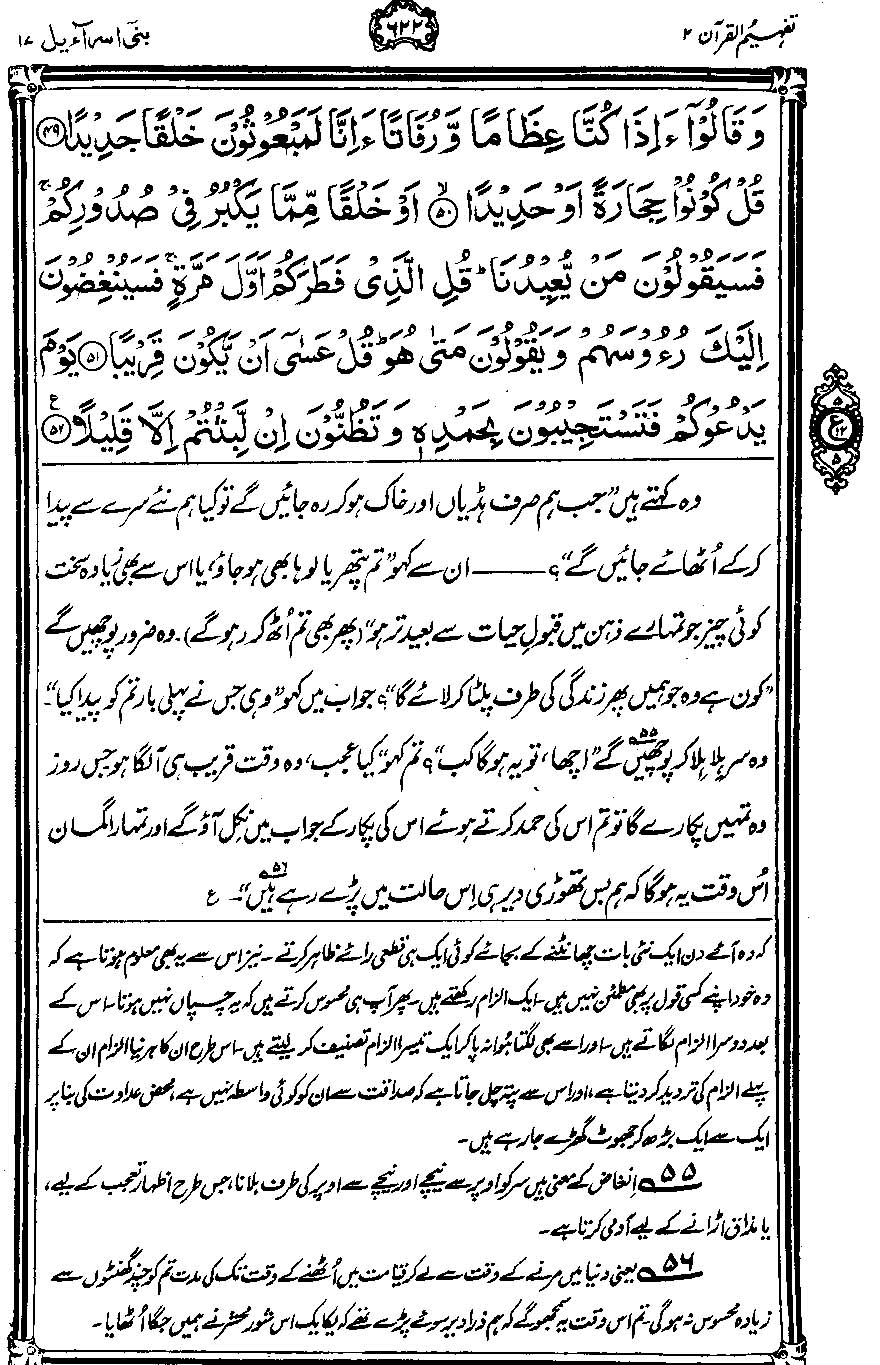 تفہیم القرآن ۲
۶۲۲
بنی اسرآءیل ۱۷
وَ قَالُوْٓا ءَاِذَا كُنَّا عِظَامًا وَّ رُفَاتًا ءَاِنَّا لَمَبْعُوْثُوْنَ خَلْقًا جَدِيْدًا ﴿۴۹﴾
قُلْ كُوْنُوْا حِجَارَةً اَوْ حَدِيْدًا ۙ﴿۵۰﴾ اَوْ خَلْقًا مِّمَّا يَكْبُرُ فِيْ صُدُوْرِكُمْ ۚ
فَسَيَقُوْلُوْنَ مَنْ يُّعِيْدُنَا ؕ قُلِ الَّذِيْ فَطَرَكُمْ اَوَّلَ مَرَّةٍ ۚ فَسَيُنْغِضُوْنَ
اِلَيْكَ رُءُوْسَهُمْ وَ يَقُوْلُوْنَ مَتٰى هُوَ ؕ قُلْ عَسٰٓى اَنْ يَّكُوْنَ قَرِيْبًا ﴿۵۱﴾ يَوْمَ
يَدْعُوْكُمْ فَتَسْتَجِيْبُوْنَ بِحَمْدِهٖ وَ تَظُنُّوْنَ اِنْ لَّبِثْتُمْ اِلَّا قَلِيْلًا ﴿۵۲﴾ ع
۵
ع
۱۲
۵
وہ کہتے ہیں ”جب ہم صرف ہڈیاں اور خاک ہو کر رہ جائیں گے تو کیا ہم نئے سرے سے پیدا
کر کے اُٹھائے جائیں گے“؟ ——— ان سے کہو ”تم پتھر یا لوہا بھی ہو جاؤ، یا اس سے بھی زیادہ سخت
کوئی چیز جو تمہارے ذہن میں قبولِ حیات سے بعید تر ہو“ (پھر بھی تم اُٹھ کر رہو گے)۔ وہ ضرور پوچھیں گے
”کون ہے وہ جو ہمیں پھر زندگی کی طرف پلٹا کر لائے گا“؟ جواب میں کہو ”وہی جس نے پہلی بار تم کو پیدا کیا“۔
وہ سر ہلا ہلا کر پوچھیں۵۵ گے ”اچھا، تو یہ ہوگا کب“؟ تم کہو ”کیا عجب، وہ وقت قریب ہی آ لگا ہو جس روز
وہ تمہیں پکارے گا تو تم اس کی حمد کرتے ہوئے اس کی پکار کے جواب میں نکل آؤ گے اور تمہارا گمان
اُس وقت یہ ہوگا کہ ہم بس تھوڑی دیر ہی اِس حالت میں پڑے رہے ہیں۵۶“۔ ع
کہ وہ آئے دن ایک نئی بات چھانٹنے کے بجائے کوئی ایک ہی قطعی رائے ظاہر کرتے۔ نیز اس سے یہ بھی معلوم ہوتا ہے کہ
وہ خود اپنے کسی قول پر بھی مطمئن نہیں ہیں۔ ایک الزام رکھتے ہیں۔ پھر آپ ہی محسوس کرتے ہیں کہ یہ چسپاں نہیں ہوتا۔ اس کے
بعد دوسرا الزام لگاتے ہیں۔ اور اسے بھی لگتا ہوا نہ پا کر ایک تیسرا الزام تصنیف کر لیتے ہیں۔ اس طرح ان کا ہر نیا الزام ان کے
پہلے الزام کی تردید کر دیتا ہے، اور اس سے پتہ چل جاتا ہے کہ صداقت سے ان کو کوئی واسطہ نہیں ہے، محض عداوت کی بنا پر
ایک سے ایک بڑھ کر جھوٹ گھڑے جا رہے ہیں۔
۵۵ اِنغاض کے معنی ہیں سر کو اوپر سے نیچے اور نیچے سے اوپر کی طرف ہلانا، جس طرح اظہار تعجب کے لیے،
یا مذاق اڑانے کے لیے آدمی کرتا ہے۔
۵۶ یعنی دنیا میں مرنے کے وقت سے لے کر قیامت میں اُٹھنے کے وقت تک کی مدت تم کو چند گھنٹوں سے
زیادہ محسوس نہ ہوگی۔ تم اس وقت یہ سمجھو گے کہ ہم ذرا دیر سوئے پڑے تھے کہ یکایک اس شور محشر نے ہمیں جگا اُٹھایا۔